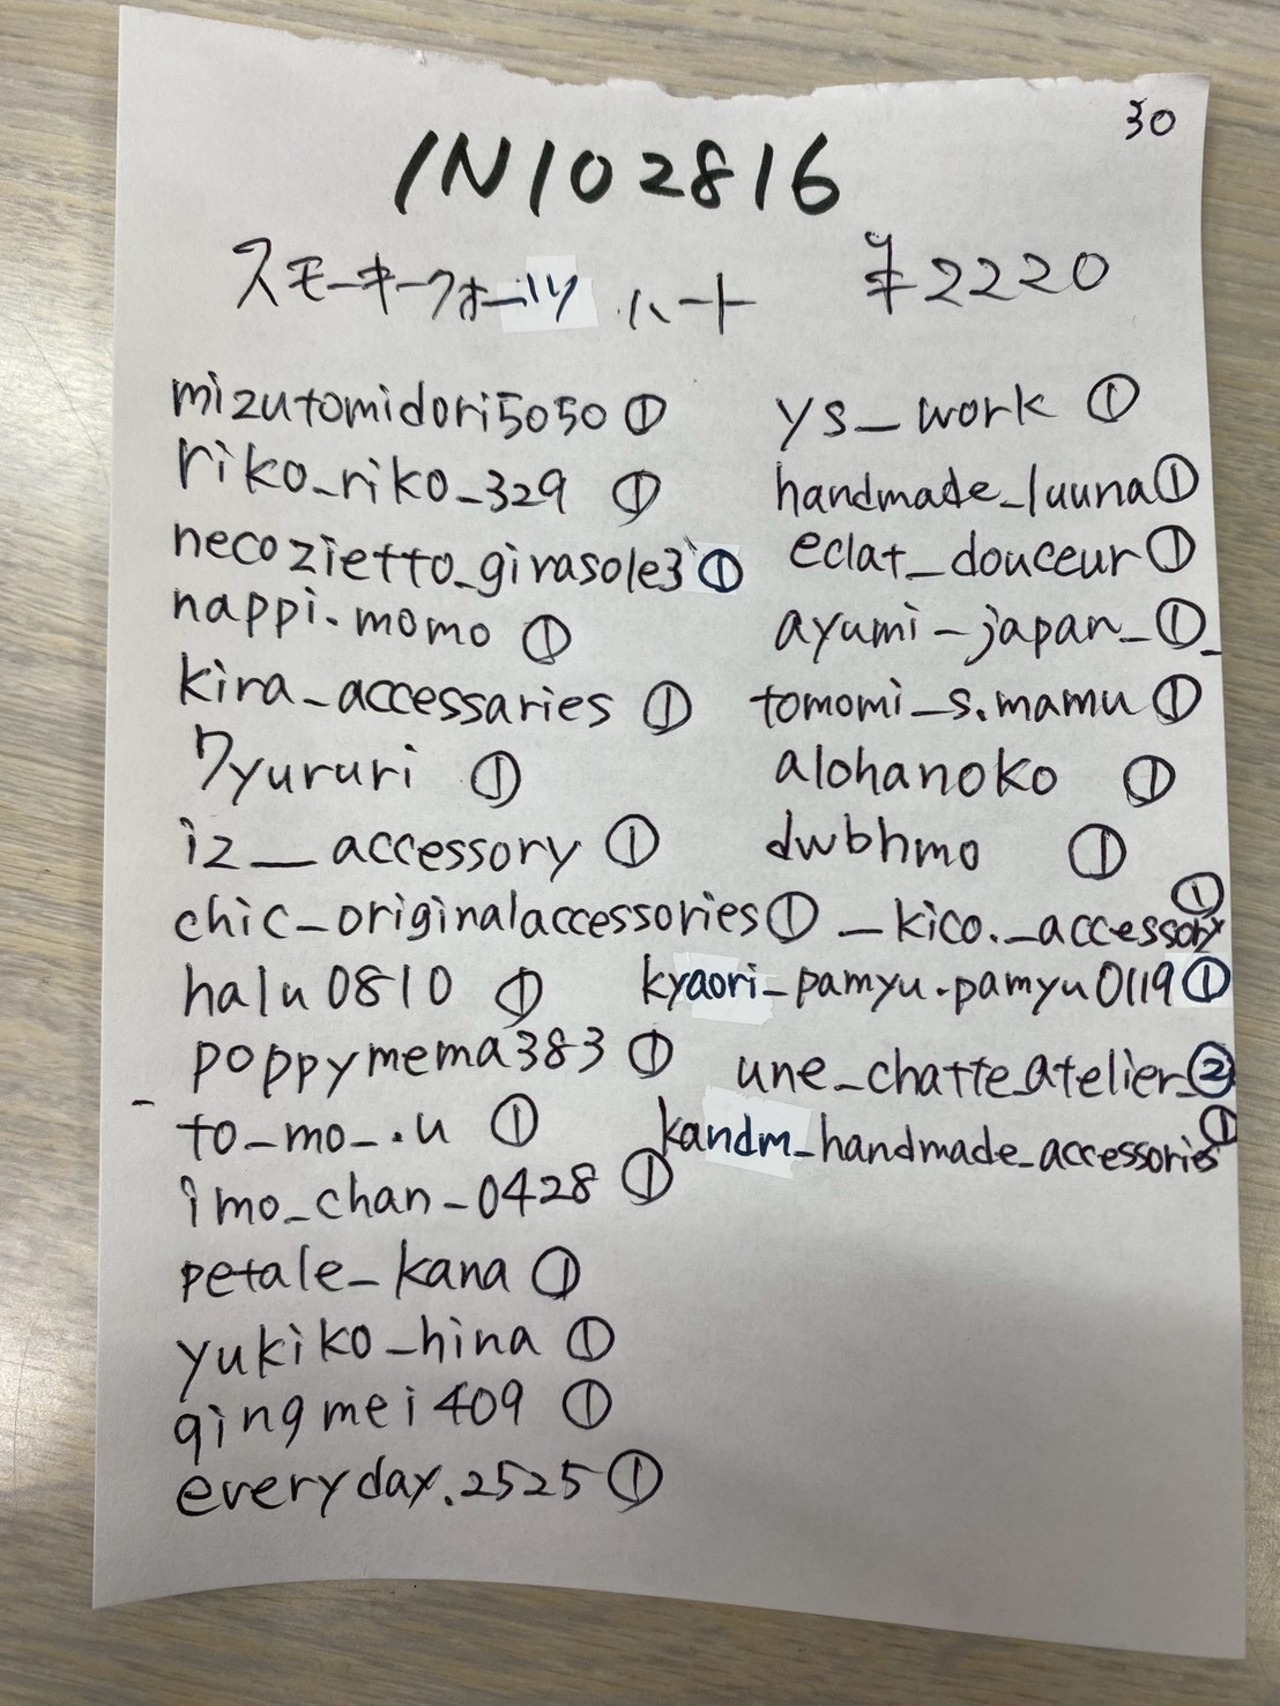 30
IN102816
スモーキークォーツ ハート ¥2220
mizutomidori5050 ①
riko_riko_329 ①
necozietto_girasole3 ①
nappi.momo ①
kira_accessaries ①
7yururi ①
iz__accessory ①
chic_originalaccessories ①
halu0810 ①
poppymema383 ①
to_mo_.u ①
imo_chan_0428 ①
petale_kana ①
yukiko_hina ①
qingmei409 ①
everyday.2525 ①
ys_work ①
handmade_luuna ①
eclat_douceur ①
ayumi_japan_ ① _
tomomi_s.mamu ①
alohanoko ①
dwbhmo ①
_kico._accessory ①
kyaori_pamyu.pamyu0119 ①
une_chatte_atelier_ ②
kandm_handmade_accessories ①